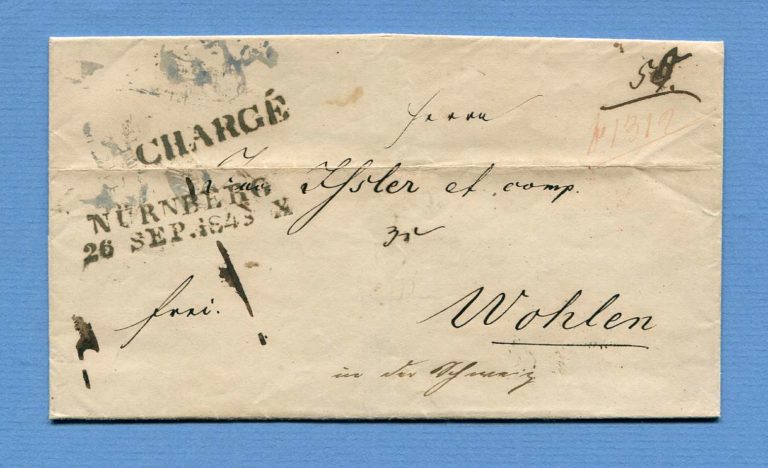 CHARGÉ
NÜRNBERG
26 SEP. 1843 X
59.
N 1312
Herrn
Isler et comp.
zu
Wohlen
frei.
in der Schweiz